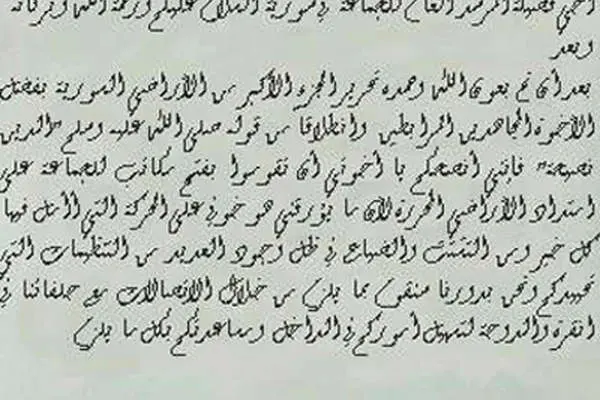 أخي فضيلة المرشد العام للجماعة في سورية السلام عليكم ورحمة الله وبركاته
وبعد
بعد أن تم بعون الله وحمده تحرير الجزء الأكبر من الأراضي السورية بفضل
الأخوة المجاهدين المرابطين وانطلاقا من قوله صلى الله عليه وسلم "الدين
نصيحة" فإنني أنصحكم يا أخوتي أن تقوموا بفتح مكاتب للجماعة على
امتداد الأراضي المحررة لأن ما يؤرقني هو خوفي على الحركة التي أأمل فيها
كل خير من التشتت والضياع في ظل وجود العديد من التنظيمات التي
تحييدكم ونحن بدورنا سنقوم بما يلزم من خلال الاتصالات مع حلفائنا في
انقرة والدوحة لتسهيل أموركم في الداخل ومساعدتكم بكل ما يلزم